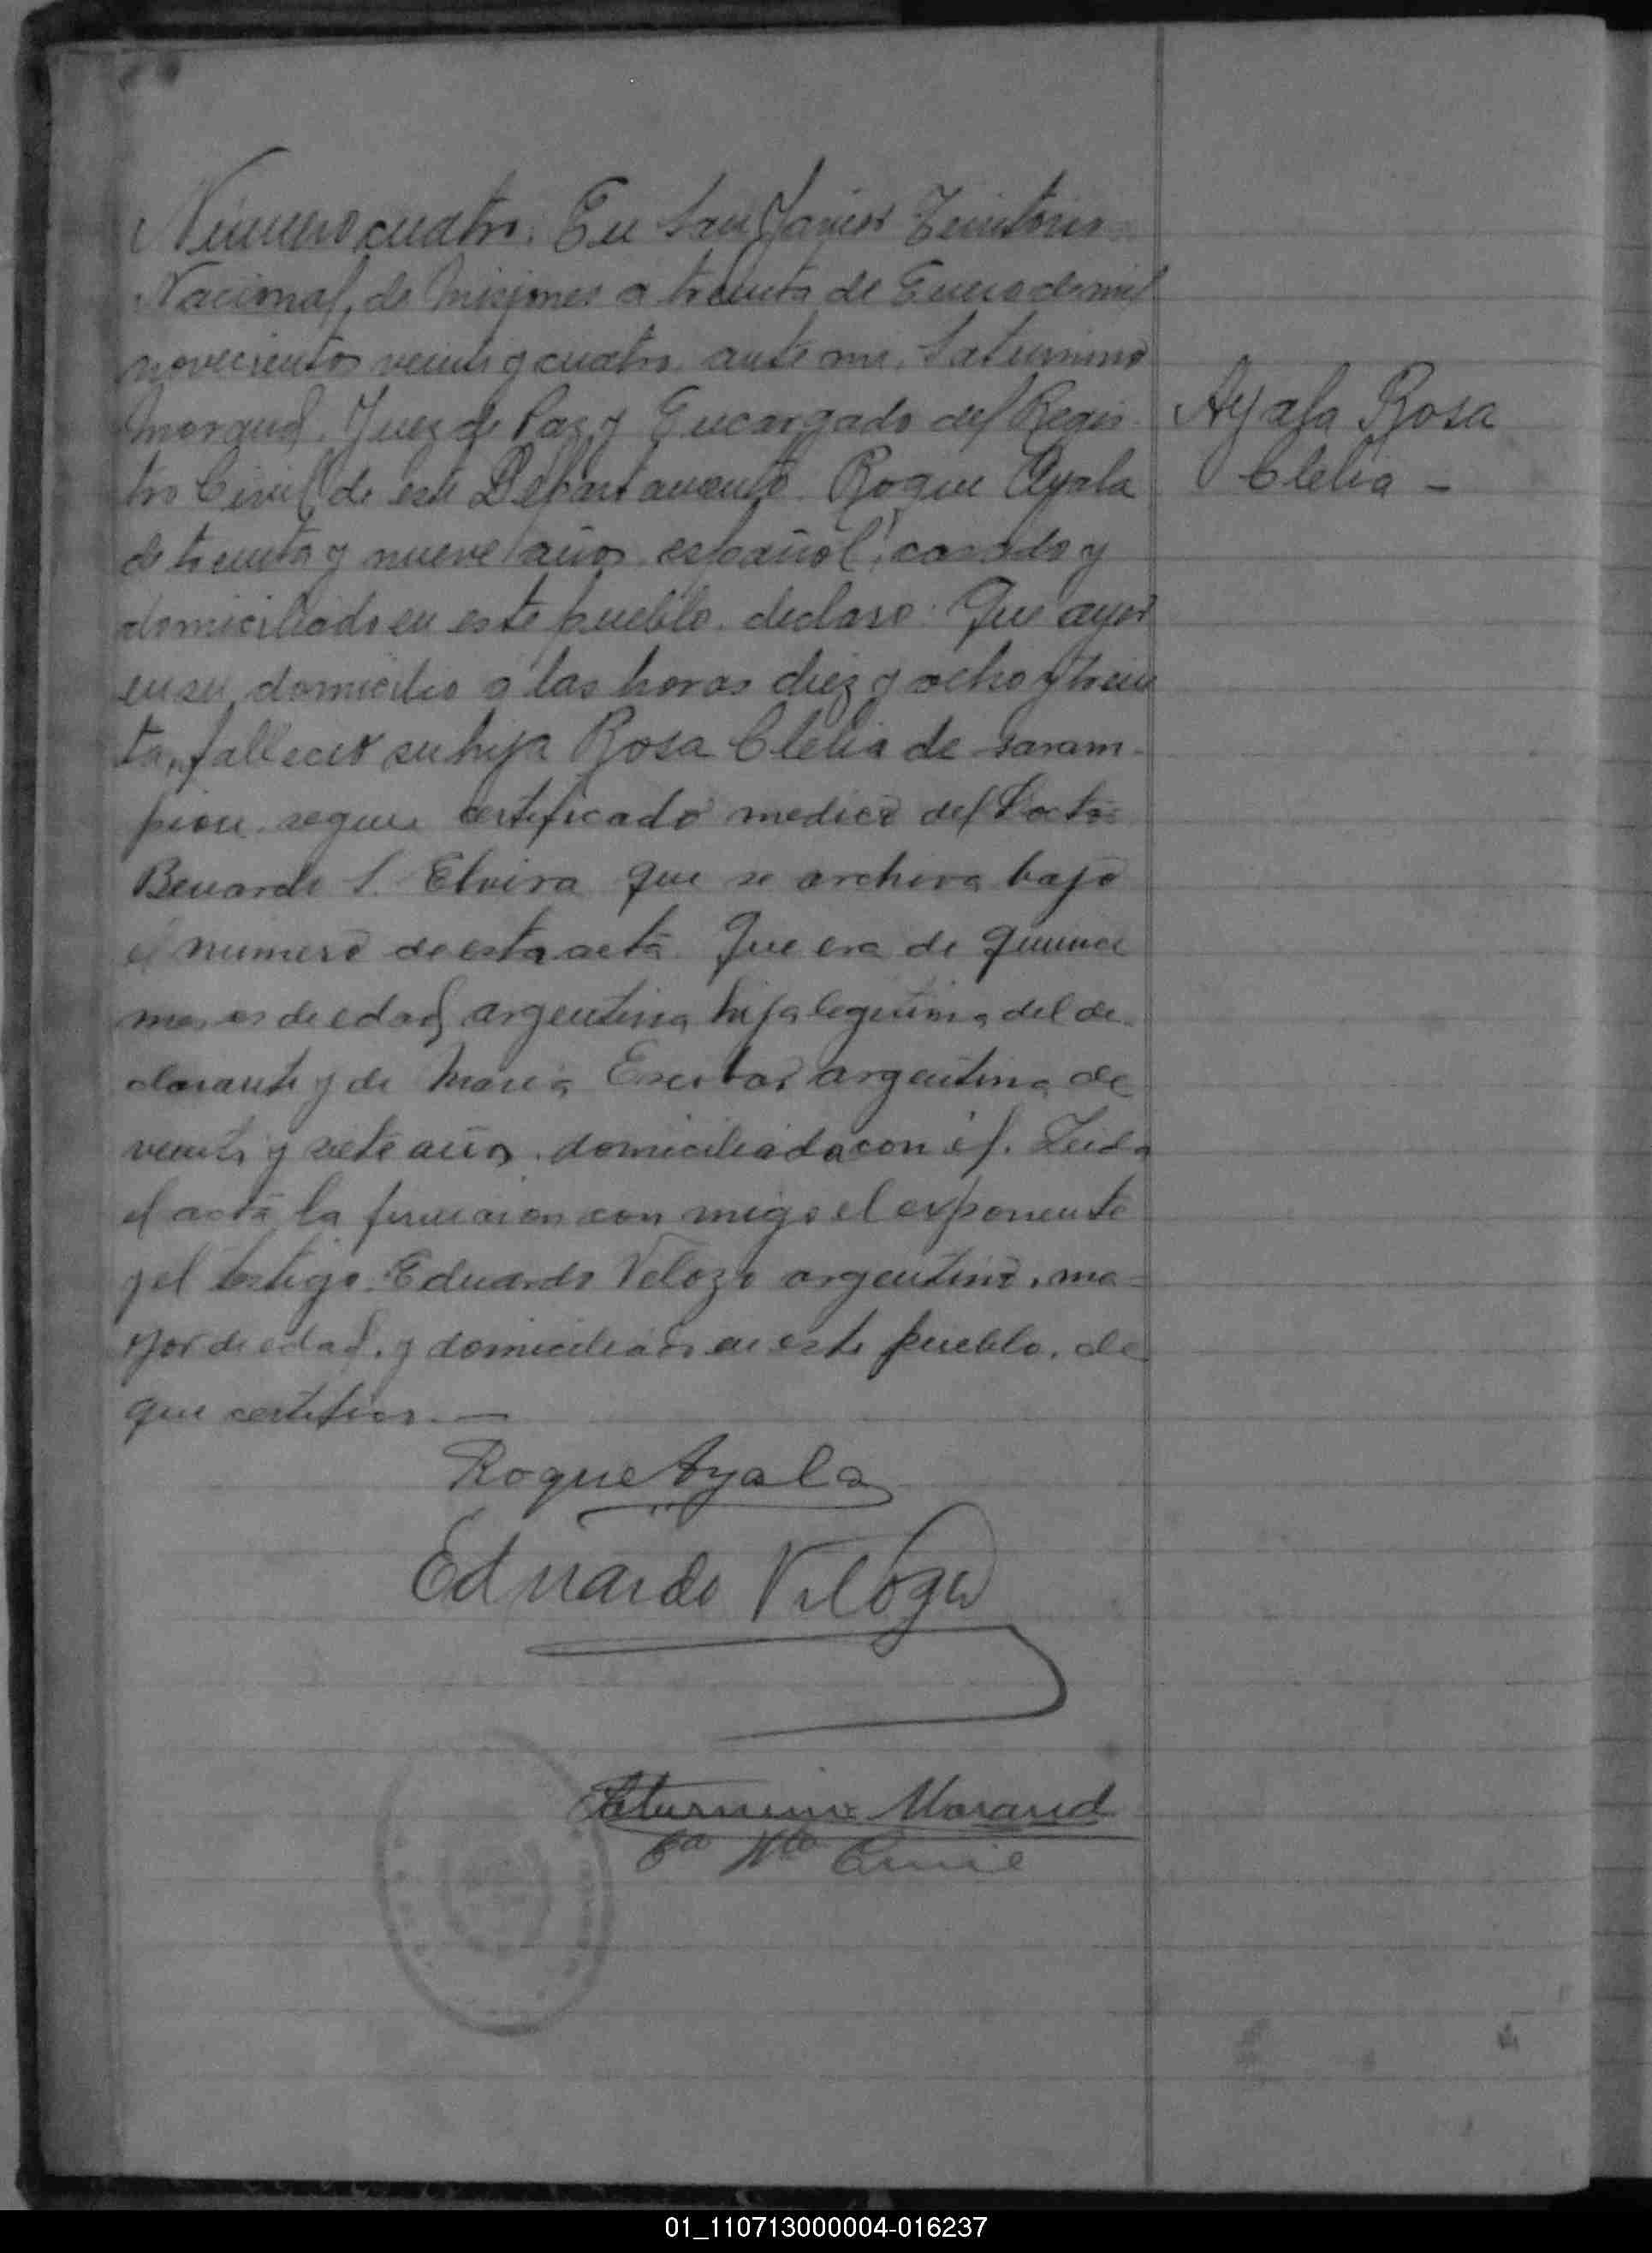 Número cuatro. En San Javier Territorio
Nacional de Misiones a treinta de Enero de mil
novecientos veinte y cuatro, ante mi, Saturnino
Morand, Juez de Paz y Encargado del Regis-
tro Civil de este Departamento. Roque Ayala
de treinta y nueve años, español, casado y
domiciliado en este pueblo, declaro: Que ayer
en su domicilio a las horas diez y ocho y trein
ta, fallecio su hija Rosa Clelia de saram-
pion, segun certificado medico del Doctor
Benardo S. Elvira que se archiva bajo
el numero de esta acta. Que era de quince
meses de edad, argentina, hija legitima del de-
clarante y de Maria Escobar, argentina, de
veinte y siete años, domiciliada con él. Leida
el acta la firmaron con migo el exponente
y el testigo Eduardo Velozo argentino, ma-
yor de edad, y domiciliado en este pueblo, de
que certifico.—
Ayala Rosa
Clelia -
Roque Ayala
Eduardo Velozo
Saturnino Morand
01_110713000004-016237